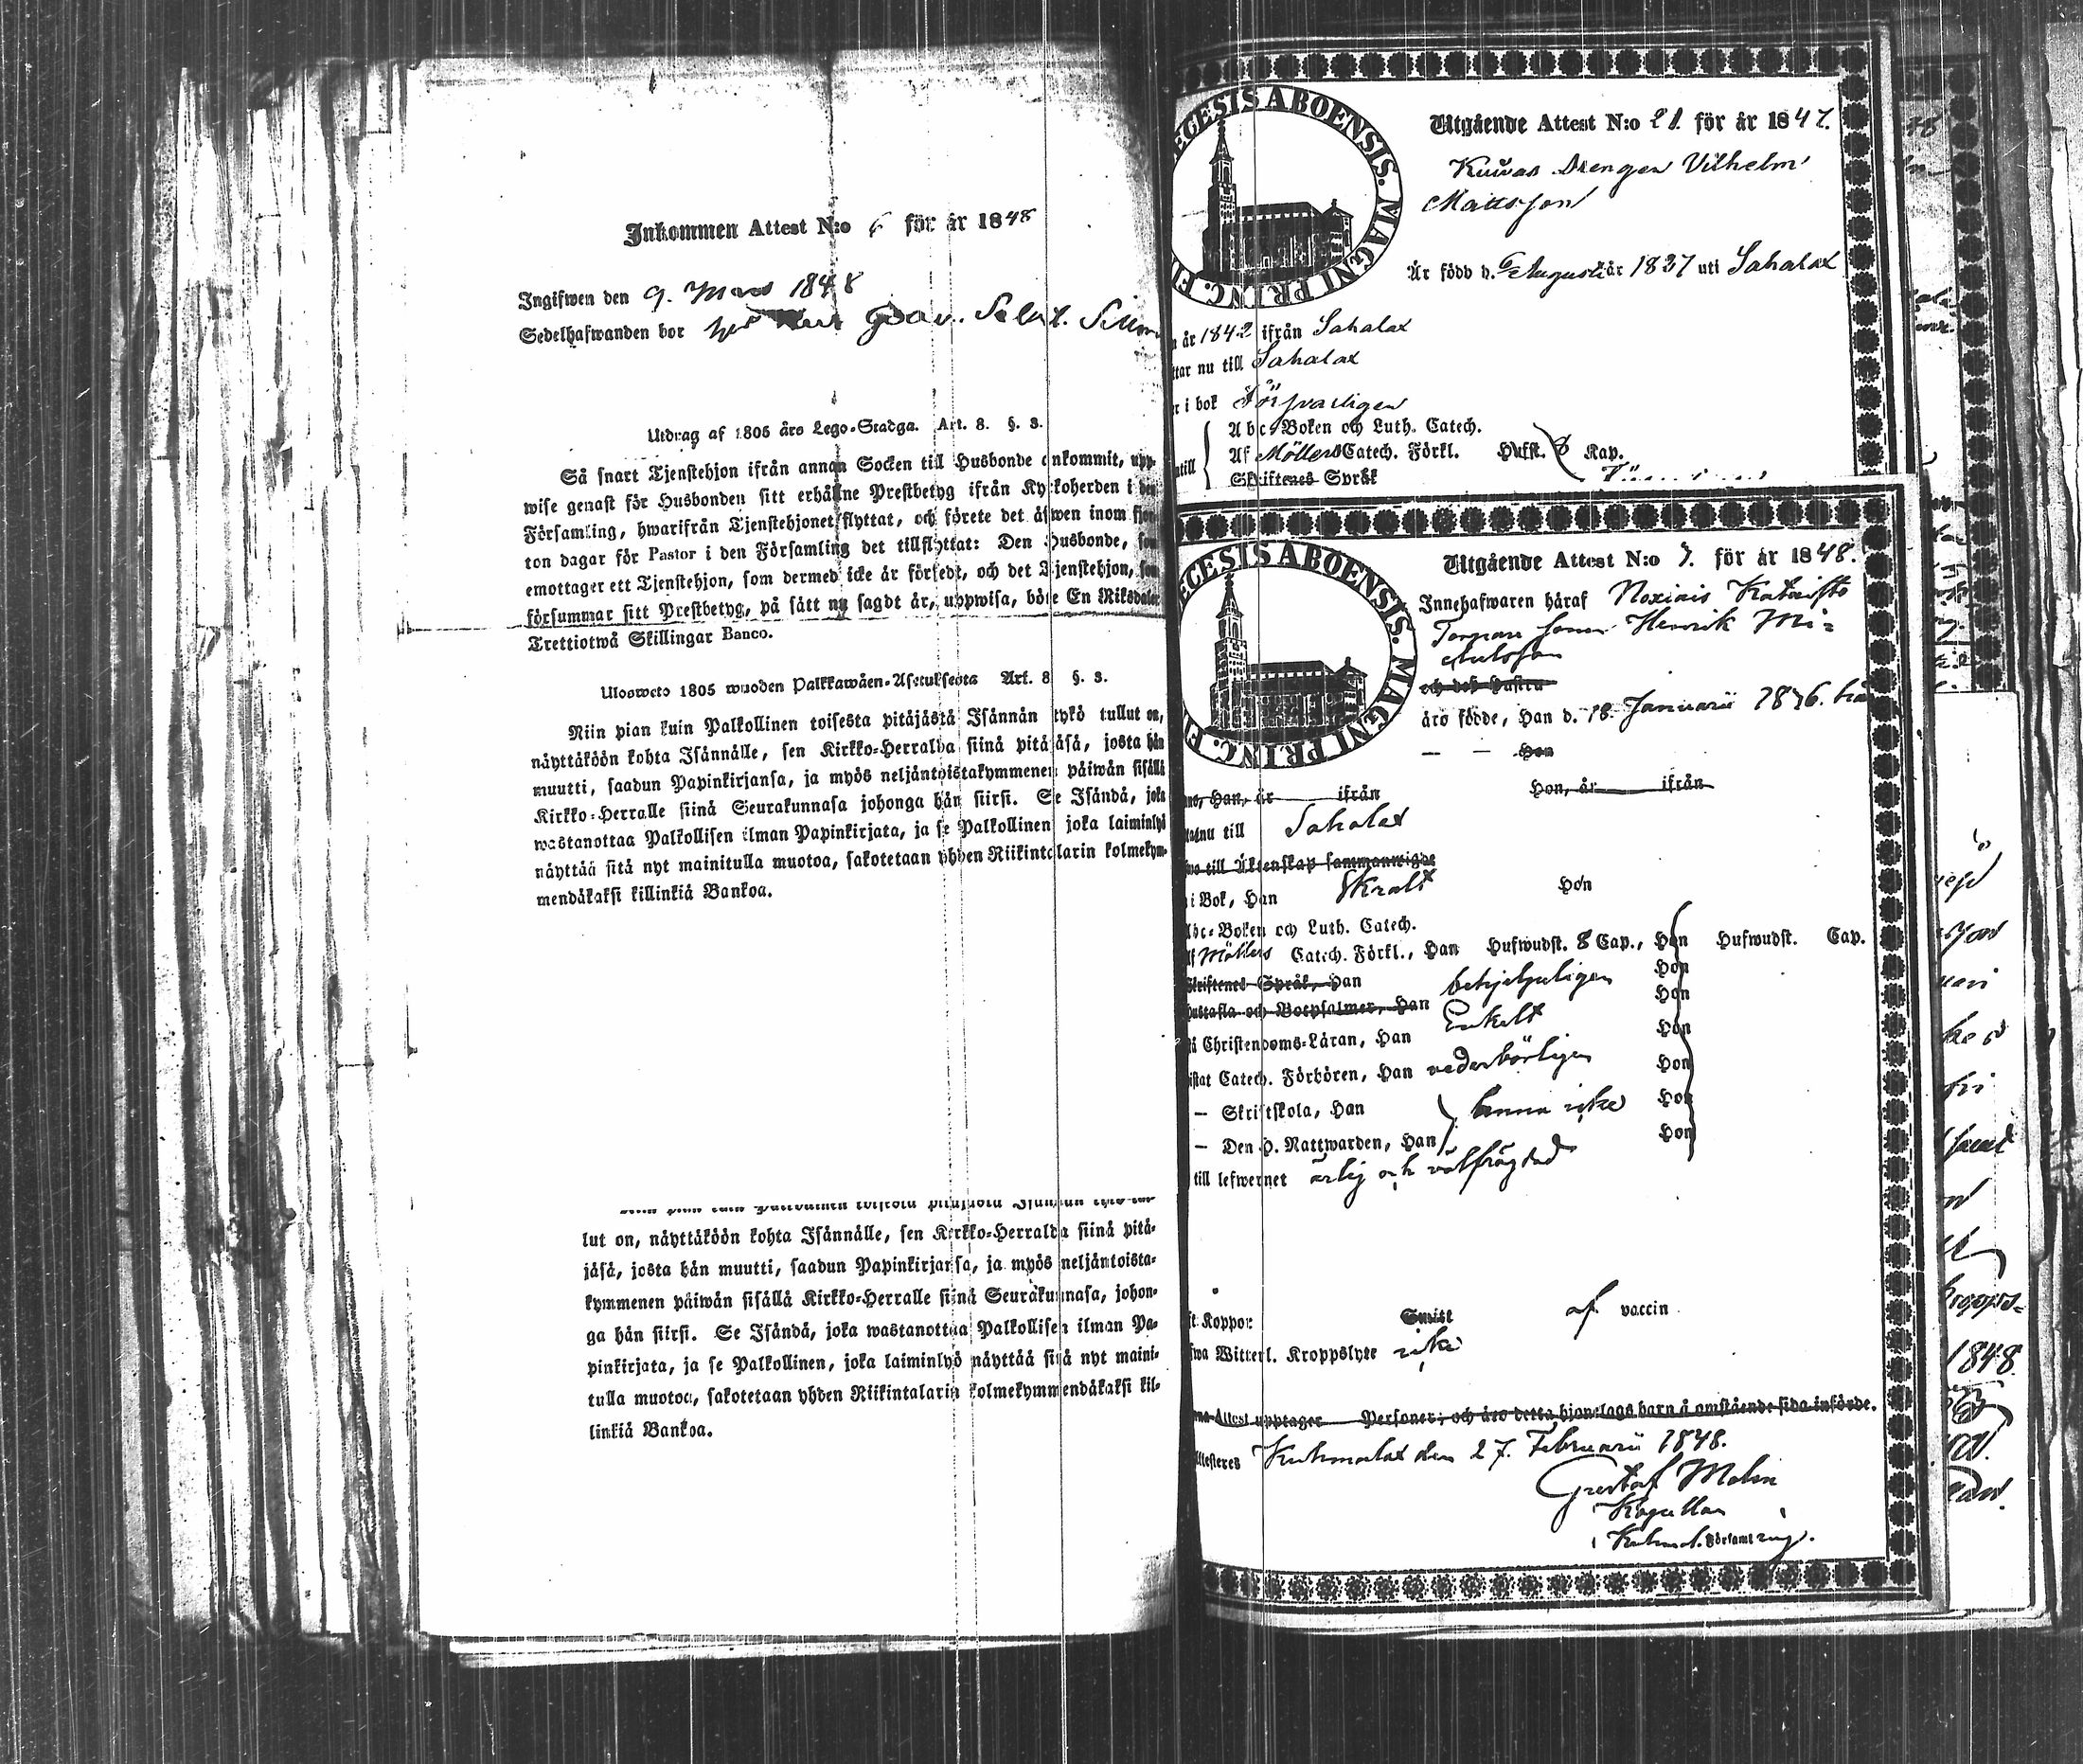 Inkommen Attest N:o 6 för år 1848
Ingifwen den 9. Mars 1848
Sedelhafwanden bor
Utdrag af 1805 års Lego-Stadga. Art. 8. §. 3.
Så snart Tjenstehjon ifrån annan Socken till Husbonde ankommit, upp-
wise genast för Husbonden sitt erhållne Prestbetyg ifrån Kyrkoherden i den
Församling, hwarifrån Tjenstehjonet flyttat, och förete det äfwen inom fjor-
ton dagar för Pastor i den Församling det tillflyttat: Den Husbonde, som
emottager ett Tjenstehjon, som dermed icke är försedt, och det Tjenstehjon, som
försummar sitt Prestbetyg, på sätt nu sagdt är, uppwisa, böte En Riksdaler
Trettiotwå Skillingar Banco.
Ulosweto 1805 wuoden Palkkawäen-Asetuksesta Art. 8 §. 3.
Niin pian kuin Palkollinen toisesta pitäjästä Isännän tykö tullut on,
näyttäköön kohta Isännälle, sen Kirkko-Herralda siinä pitäjäsä, josta hän
muutti, saadun Papinkirjansa, ja myös neljäntoistakymmenen päiwän sisällä
Kirkko-Herralle siinä Seurakunnasa johonga hän siirsi. Se Isändä, joka
wastanottaa Palkollisen ilman Papinkirjata, ja se Palkollinen joka laiminlyö
näyttää sitä nyt mainitulla muotoa, sakotetaan yhden Riikintalarin kolmekym-
mendäkaksi killinkiä Bankoa.
lut on, näyttäköön kohta Isännälle, sen Kirkko-Herralda siinä pitä-
jäsä, josta hän muutti, saadun Papinkirjansa, ja myös neljäntoista-
kymmenen päiwän sisällä Kirkko-Herralle siinä Seurakunnasa, johon-
ga hän siirsi. Se Isändä, joka wastanottaa Palkollisen ilman Pa-
pinkirjata, ja se Palkollinen, joka laiminlyö näyttää sitä nyt maini-
tulla muotoa, sakotetaan yhden Riikintalarin kolmekymmendäkaksi kil-
linkiä Bankoa.
ECESIS ABOENSIS. MAGNI PRINC. F
Utgående Attest N:o 21. för år 1847.
Drengen Vilhelm
Mattsson
Är född d. Augusti år 1827 uti Sahalax
år 1842 ifrån Sahalax
ttar nu till Sahalax
r i bok Försvarligen
Abc-Boken och Luth. Catech.
ntill Af Möllers Catech. Förkl. Hufst. 8 Kap.
Skriftenes Språk
ECESIS ABOENSIS. MAGNI PRINC. F
Utgående Attest N:o 7. för år 1848.
Innehafwaren häraf
Torpare sonen Henrik Mi-
chelsson
och deß Hustru
äro födde, Han d. 18. Januarii
— — Hon
Han, år ifrån Hon, år ifrån
nu till Sahalax
till Äktenskap sammanwigde
i Bok, Han Svalt Hon
Abc-Boken och Luth. Catech.
Af Möllers Catech. Förkl., Han Hufwudst. 8 Cap., Hon Hufwudst. Cap.
Skriftenes Språk, Han behjelpeligen Hon
Hustafla och Botpsalmer, Han Hon
å Christendoms-Läran, Han Enkelt Hon
istat Catech. Förhören, Han vederbörligen Hon
— Skriftskola, Han ännu icke Hon
— Den H. Nattwarden, Han Hon
till lefwernet ärlig och välfrägdad
ft Koppor Smitt af vaccin
fwa Witterl. Kroppslyte icke
Attest upptager Personer; och äro detta hjonelags barn å omstående sida införde.
ttesteres Kuhmalax den 27. Februarii 1848.
Gustaf Molin
Kapellan
Kuhmal. Församling.
1848